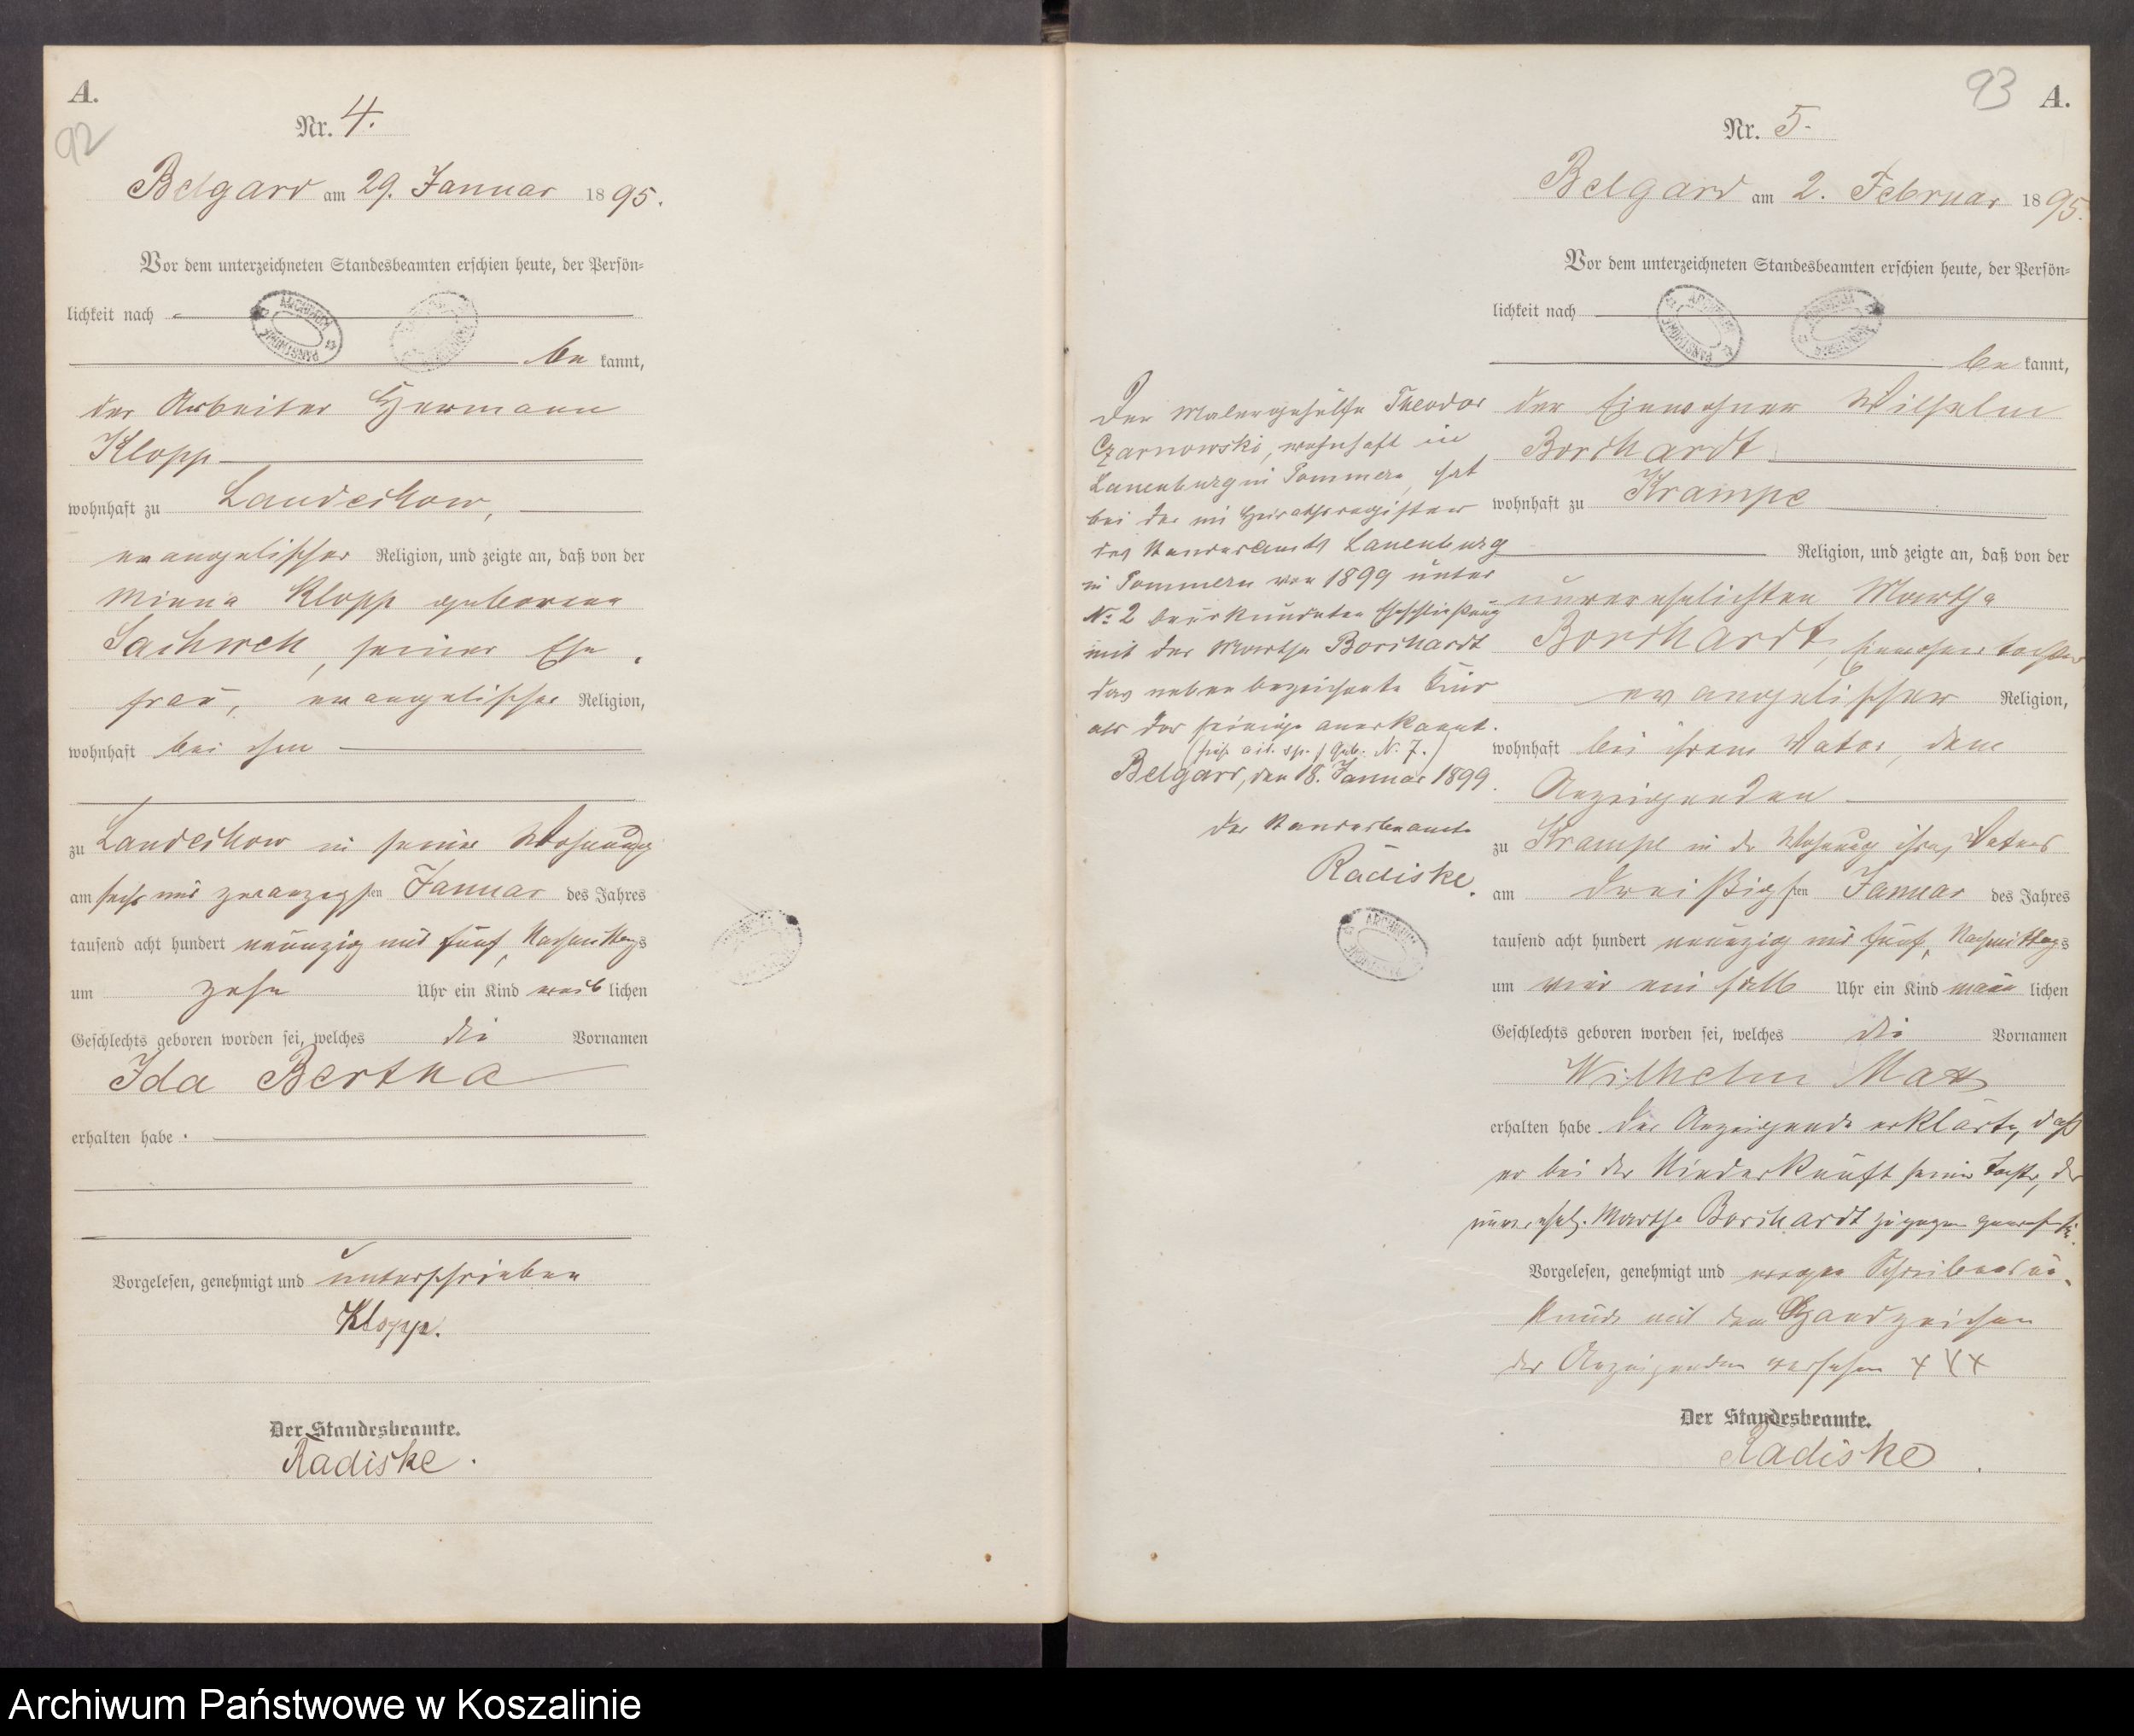 A.
92
Nr. 4.
Belgard am 29. Januar 1895.
Vor dem unterzeichneten Standesbeamten erschien heute, der Persön=
lichkeit nach
be kannt,
der Arbeiter Hermann
Klopp
wohnhaft zu Landechow,
evangelischer Religion, und zeigte an, daß von der
Minna Klopp geborene
Sachweh, seiner Ehe
frau, evangelischer Religion,
wohnhaft bei ihm
zu Landechow in seiner Wohnung
am sechs und zwanzigsten Januar des Jahres
tausend acht hundert neunzig und fünf, Nachmittags
um zehn Uhr ein Kind weib lichen
Geschlechts geboren worden sei, welches die Vornamen
Ida Bertha
erhalten habe.
Vorgelesen, genehmigt und unterschrieben
Klopp.
Der Standesbeamte.
Radiske.
93
A.
Nr. 5.
Belgard am 2. Februar 1895.
Vor dem unterzeichneten Standesbeamten erschien heute, der Persön=
lichkeit nach
be kannt,
der Einwohner Wilhelm
Borchardt
wohnhaft zu Krampe
Religion, und zeigte an, daß von der
unverehelichten Martha
Borchardt, Einwohnertochter
evangelischer Religion,
wohnhaft bei ihrem Vater, dem
Anzeigenden
zu Krampe in der Wohnung ihres Vaters
am dreißigsten Januar des Jahres
tausend acht hundert neunzig und fünf, Nachmittags
um vier ein halb Uhr ein Kind männ lichen
Geschlechts geboren worden sei, welches die Vornamen
Wilhelm Max
erhalten habe. Der Anzeigende erklärte, daß
er bei der Niederkunft seiner Tochter, der
unverehel. Martha Borchardt zugegen gewesen sei.
Vorgelesen, genehmigt und wegen Schreibensun-
kunde mit dem Handzeichen
des Anzeigenden versehen +++
Der Standesbeamte.
Radiske.
Der Malergehülfe Theodor
Czarnowski, wohnhaft in
Lauenburg in Pommern, hat
bei der im Heirathsregister
des Standesamts Lauenburg
in Pommern von 1899 unter
No 2 beurkundeten Eheschließung
mit der Martha Borchardt
das nebenbezeichnete Kind
als das seinige anerkannt.
Belgard, den 18. Januar 1899.
Der Standesbeamte
Radiske.
ARCHIWUM PAŃSTWOWE
Archiwum Państwowe w Koszalinie